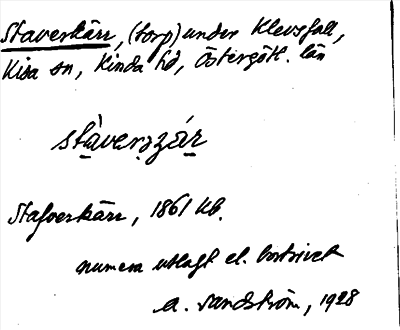 Staverkärr, (torp) under Klevsfall,
Kisa sn, Kinda hd, Östergötl. län
stàverə zár
Stafverkärr, 1861 kb.
numera utlagt el. bortrivet
A. Sandström, 1928